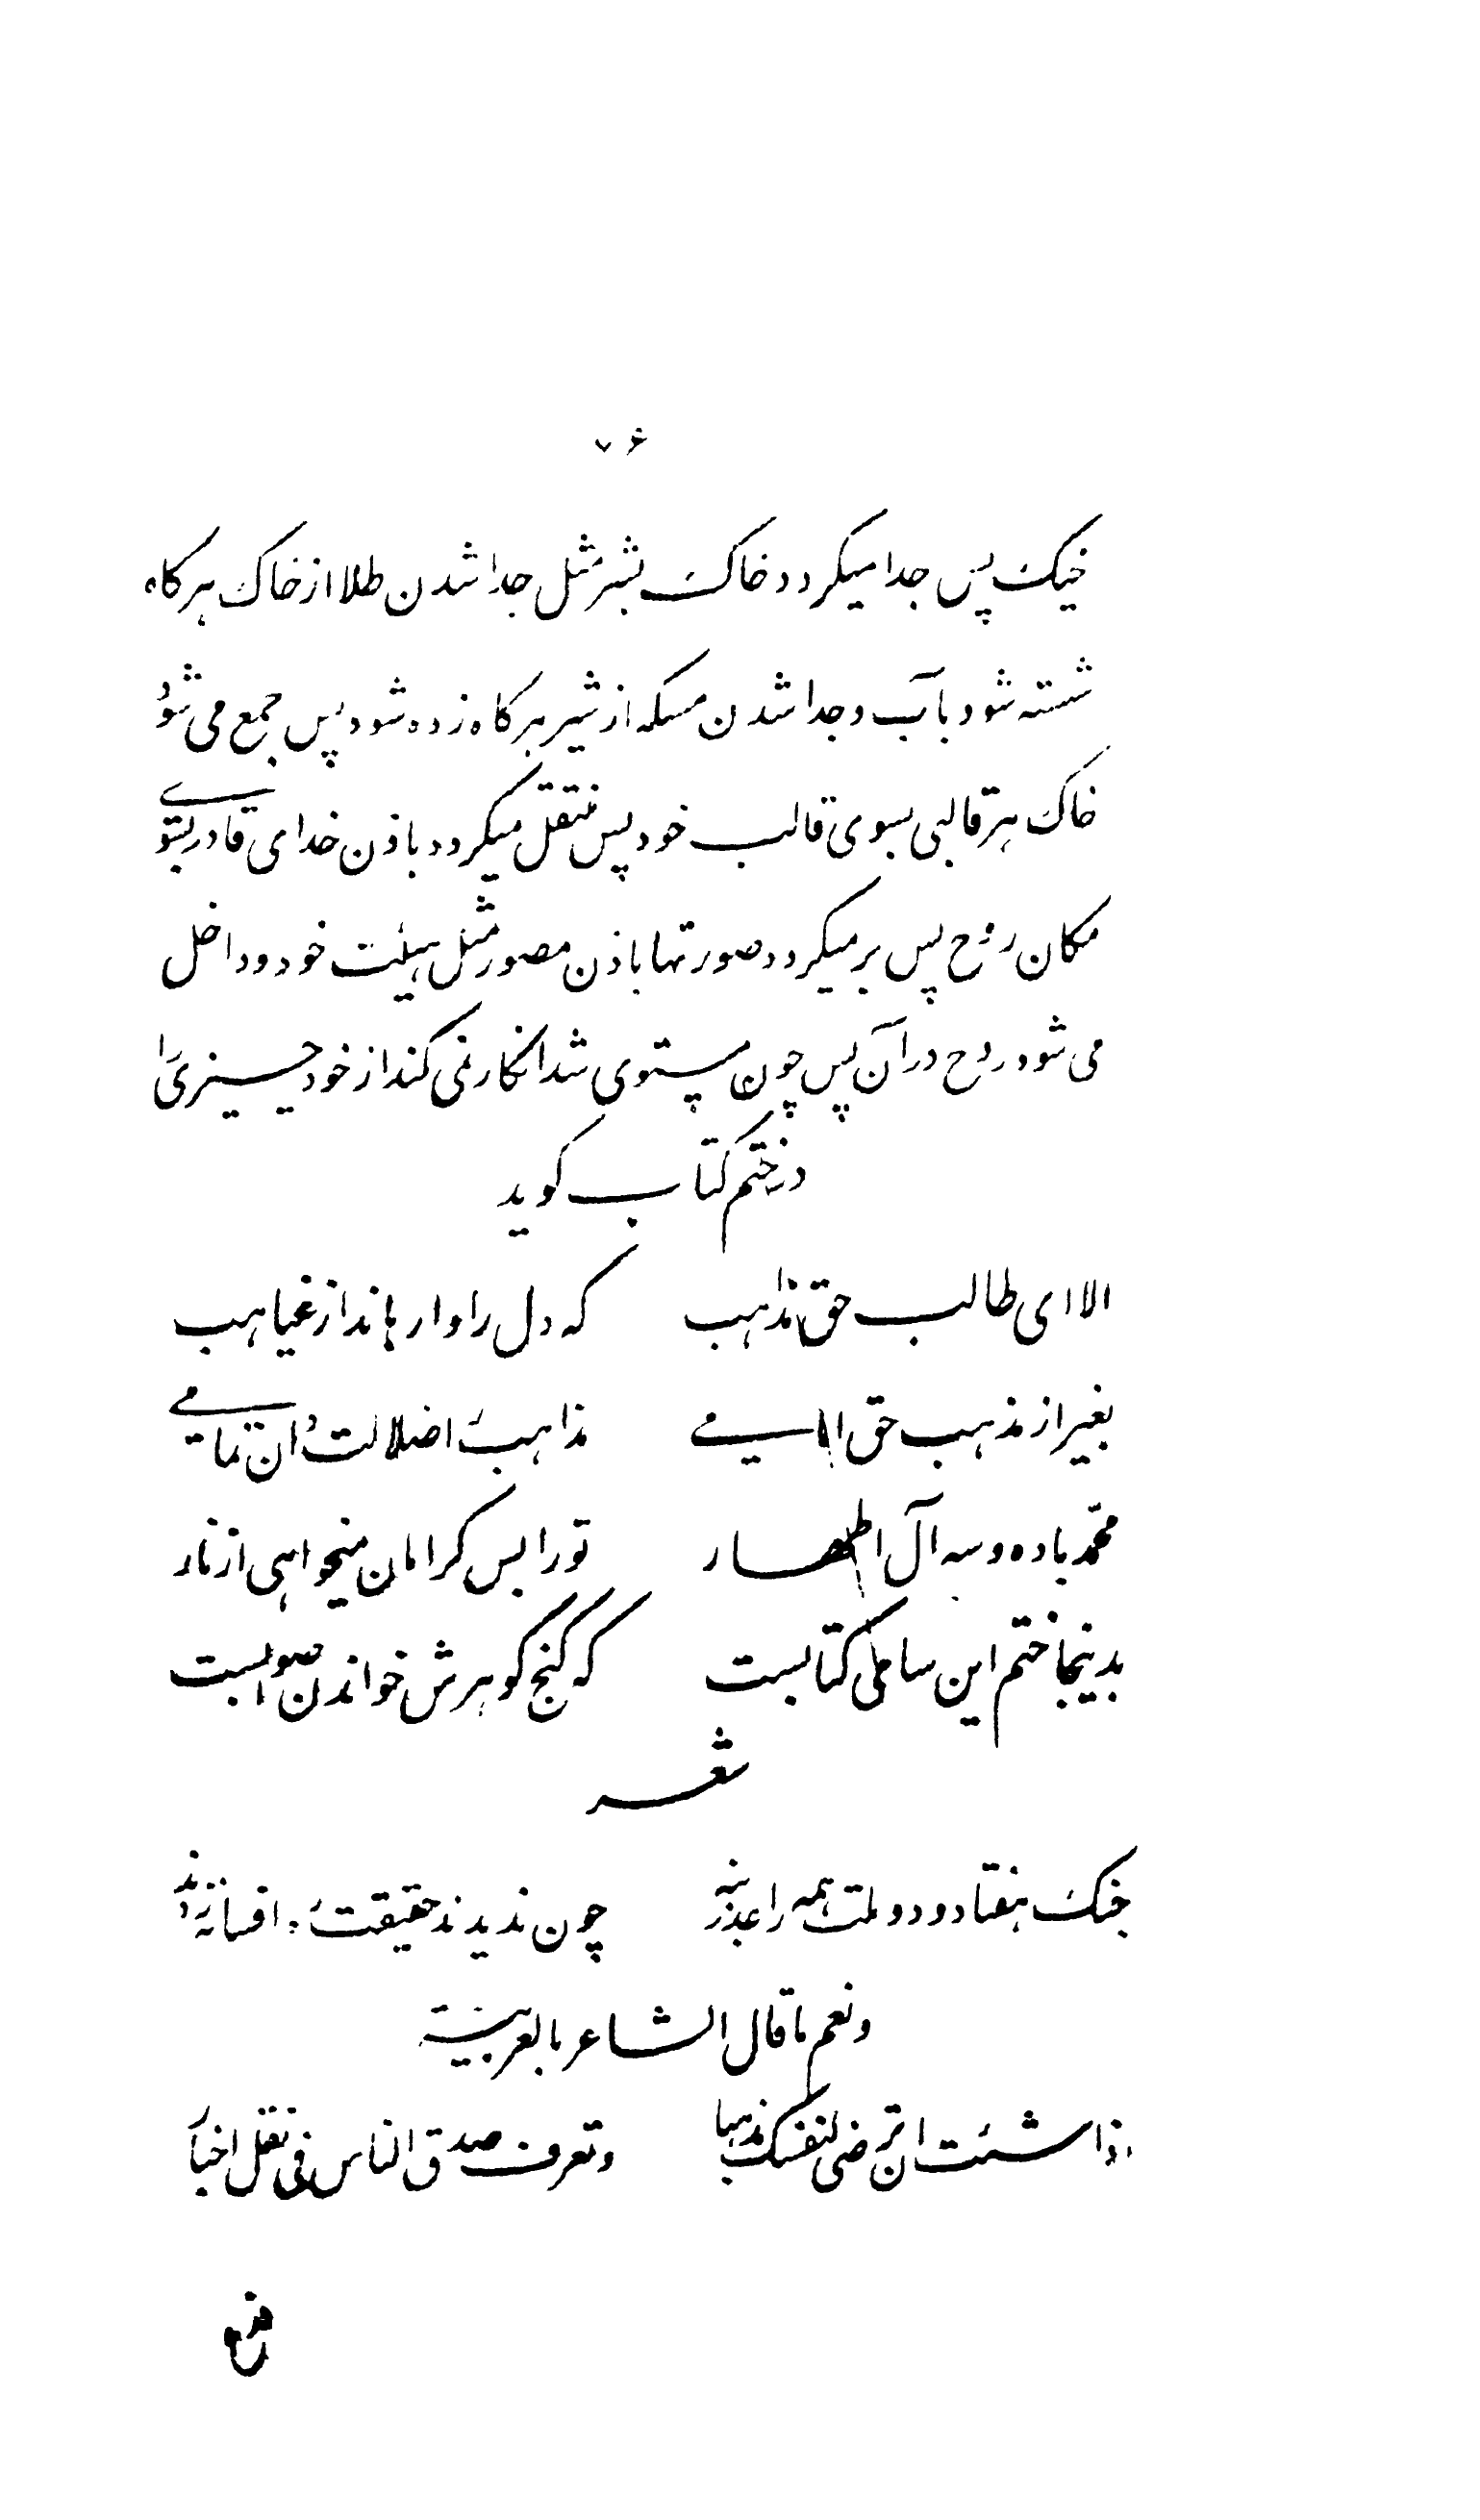 خیک پس جدا میکردد خاک بشر مثل جدا شدن طلا از خاک هرکاه
شسته شود بآب و جدا شدن مسکه از شیر هرکاه زده شود پس جمع می شود
خاک هر قالبی بسوی قالب خود پس منتقل میکردد باذن خدای قادر بسوی
مکان روح پس برمیکردد صورتها باذن مصور مثل هیئت خود و داخل
می شود روح در آن پس چون مستوی شد انکار نمی کند از خود چیزی را
در ختم کتاب کوید
الا ای طالب حق مذاهب که دل را وارهاند از غیاهب
بغیر از مذهب حق امامی مذاهب اضلالت دان تمامی
محمد با ده و سه آل اطهار تو را بس کر امان میخواهی از نار
بدینجا ختم این سامی کتابست که کنج کوهرش خواندن صوابست
شعر
جنک هفتاد و دو ملت همه را عذر بنه چون ندیدند حقیقت ره افسانه زدند
ونعم ما قال الشاعر بالعربیة
اذا شئت ان ترضی لنفسک مذهبا وتعرف صدق الناس فی نقل اخبار